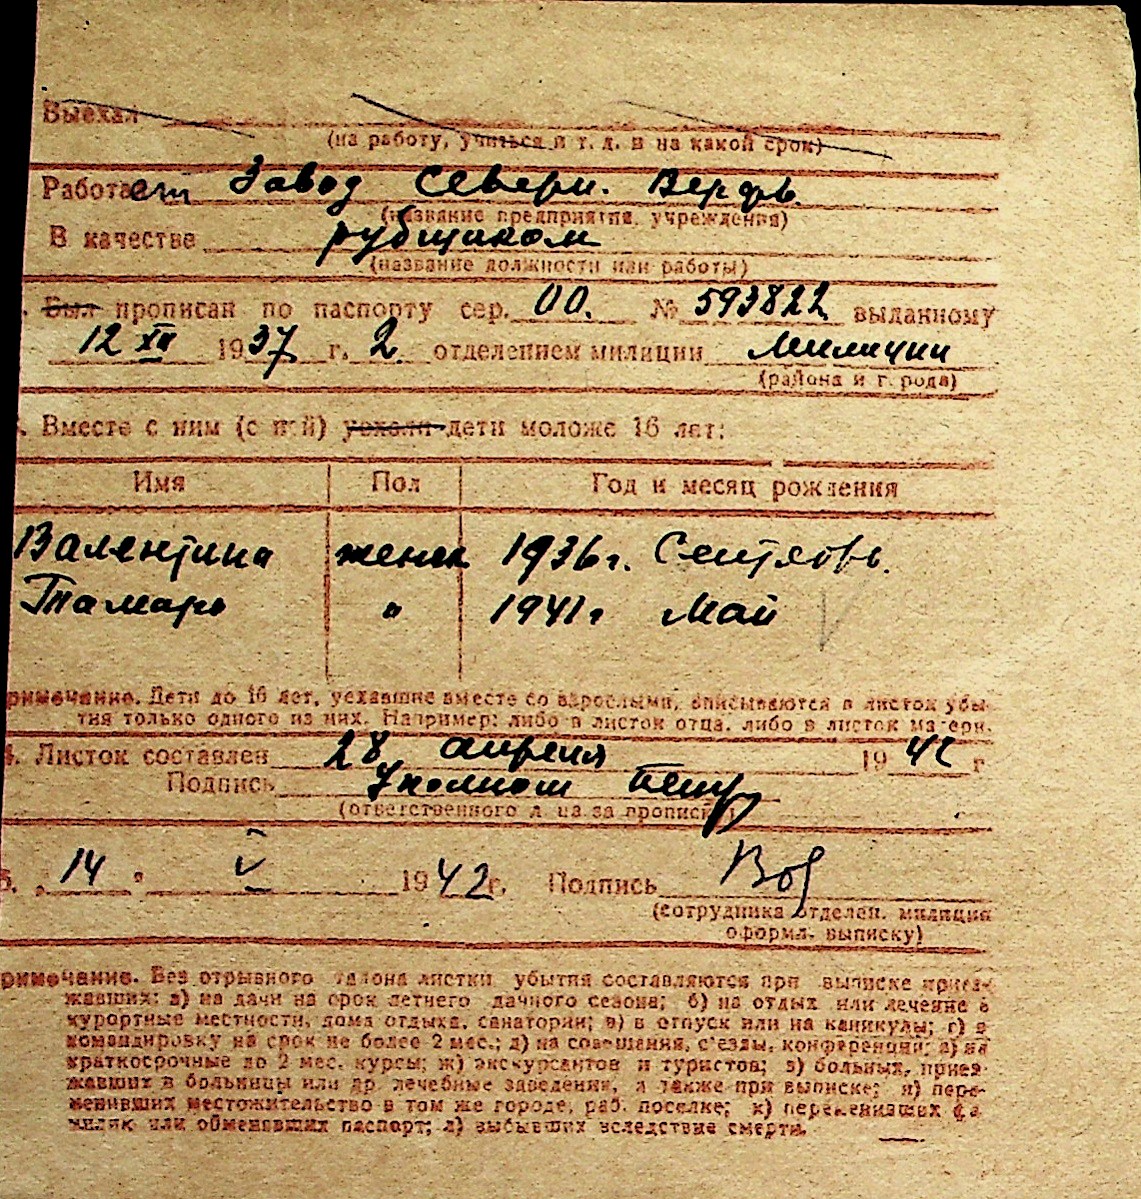 Выехал
(на работу, учиться и т. д. и на какой срок)
Работает Завод Северн. Верфь
(название предприятия, учреждения)
В качестве рубщиком
(название должности или работы)
Был прописан по паспорту сер. 00. № 593822 выданному
12 XII 1937 г. 2 отделением милиции милиции
(района и города)
. Вместе с ним (с ней) уехали дети моложе 16 лет:
Имя Пол Год и месяц рождения
Валентина женск 1936г. Сентябрь.
Тамара " 1941г Май
римечание. Дети до 16 лет, уехавшие вместе со взрослыми, вписываются в листок убы-
тия только одного из них. Например: либо в листок отца, либо в листок матери.
4. Листок составлен 28 апреля 1942 г
Подпись
(ответственного лица за прописку)
5. „14" V 1942 г. Подпись
(сотрудника отделен. милиции
оформл. выписку)
римечание. Без отрывного талона листки убытия составляются при выписке приез-
жавших: а) на дачи на срок летнего дачного сезона; б) на отдых или лечение в
курортные местности, дома отдыха, санатории; в) в отпуск или на каникулы; г) в
командировку на срок не более 2 мес.; д) на совещания, съезды, конференции; е) на
краткосрочные до 2 мес. курсы; ж) экскурсантов и туристов; з) больных, приез-
жавших в больницы или др. лечебные заведения, а также при выписке; и) пере-
менивших местожительство в том же городе, раб. поселке; к) переменивших фа-
милию или обменявших паспорт; л) выбывших вследствие смерти.